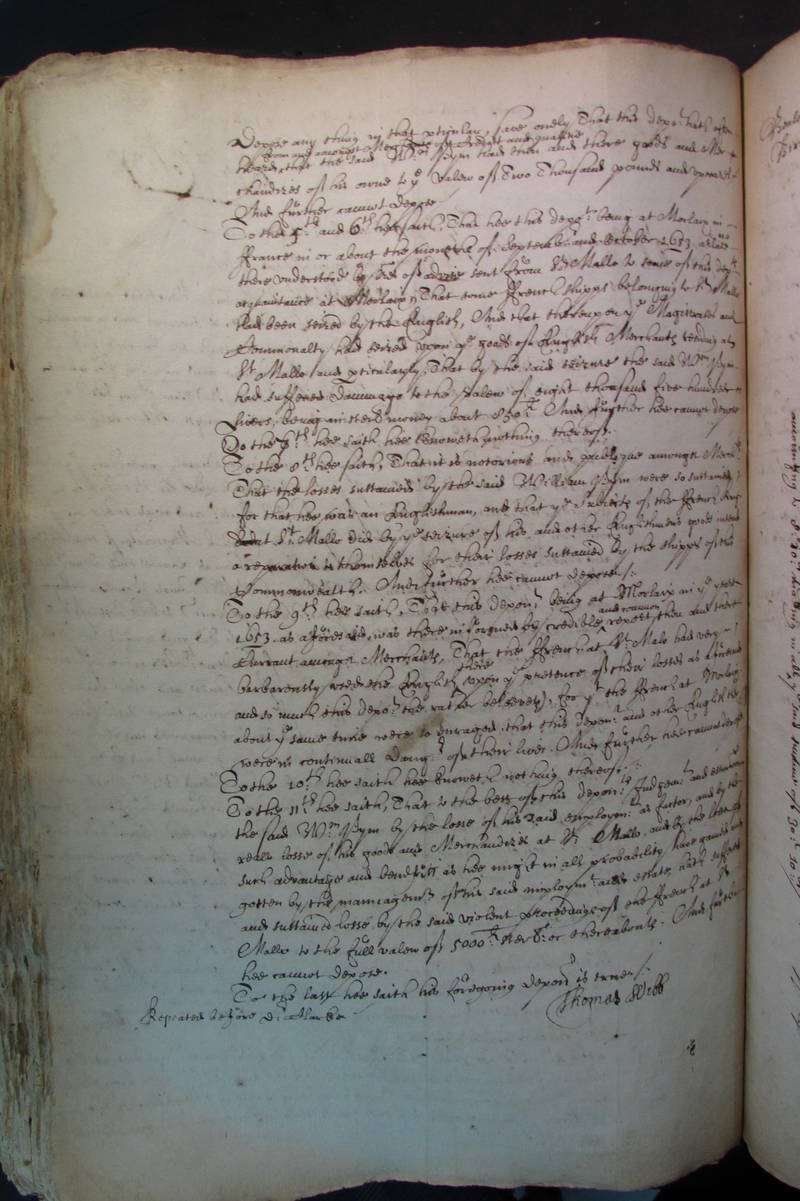 depose any thing in that pticular, save onely That this depot hath often
from and amongst Merchants of Credit and qualitie
heard, that the said Wm Pym had then and there goods and Mer-
chandizes of his owne to ye valew of Two Thousand pounds and upwards.
And further cannot depose
To the 5th and 6th hee saith, That hee this depot being at Morlaix in
ffrance in or about the moneths of September and October 1653
there understood by of advice sent from St Mallo to some of this depts
acquaintance at Morlaix, That some ffrench shipps belonging to St Mallo
had been seized by the English, And that thereupon ye Magistrates and
Commonalty had seized upon ye goods of English Merchants residing at
St Mallo and pticularly, That by the said seizure the said Wm Pym
had suffered dammage to the valew of eight thousand five hundred
livers, being in sterl money about 850li. And further hee cannot depose
To the 7th hee saith hee knoweth nothing thereof.
To the 8th hee saith, That it is notorious and publique amongst Merchts
That the losses sustained by the said William Pym were so sustained
for that hee was an Englishman, and that ye subjects of the ffrench King
at St Mallo did by ye seizure of his, and other Englishmens goods intend
a reparation to themselves for their losses sustained by the shipps of this
Commonwealth. And further hee cannot depose.
To the 9th hee saith, That this depont being at Morlaix in ye yeare
and common
1653. as aforesaid, was there informed by credible report then and there
Currant amongst Merchants, That the ffrench at St Malo had very
there
barbarously used the English upon ye pretence of their losses as aforesaid
and so much this depot the rather beleeved, for yt the ffrench at Morlaix
about ye same time were so enraged that this depont and other English there
were in continuall dangr of their lives. And further hee cannot depose
To the 10th hee saith hee knoweth nothing thereof.
To the 11th hee saith, That to the best of this deponts Judgemt and estimation
the said Wm Pym by the losse of his said employmt as factor, and by the
reall losse of his goods and Merchandizes at St Mallo, and by the losse of
such advantage and benefitts as hee might in all probability have gained and
gotten by the management of his said imploymt and estate, hath suffered
and sustained losse by the said violent proceedings of the ffrench at St
Mallo to the full valew of 5000li sterlg or thereabouts. And further
hee cannot depose.
To the last hee saith his foregoing depon is true.
Thomas Webb
Repeated before Dr Clarke